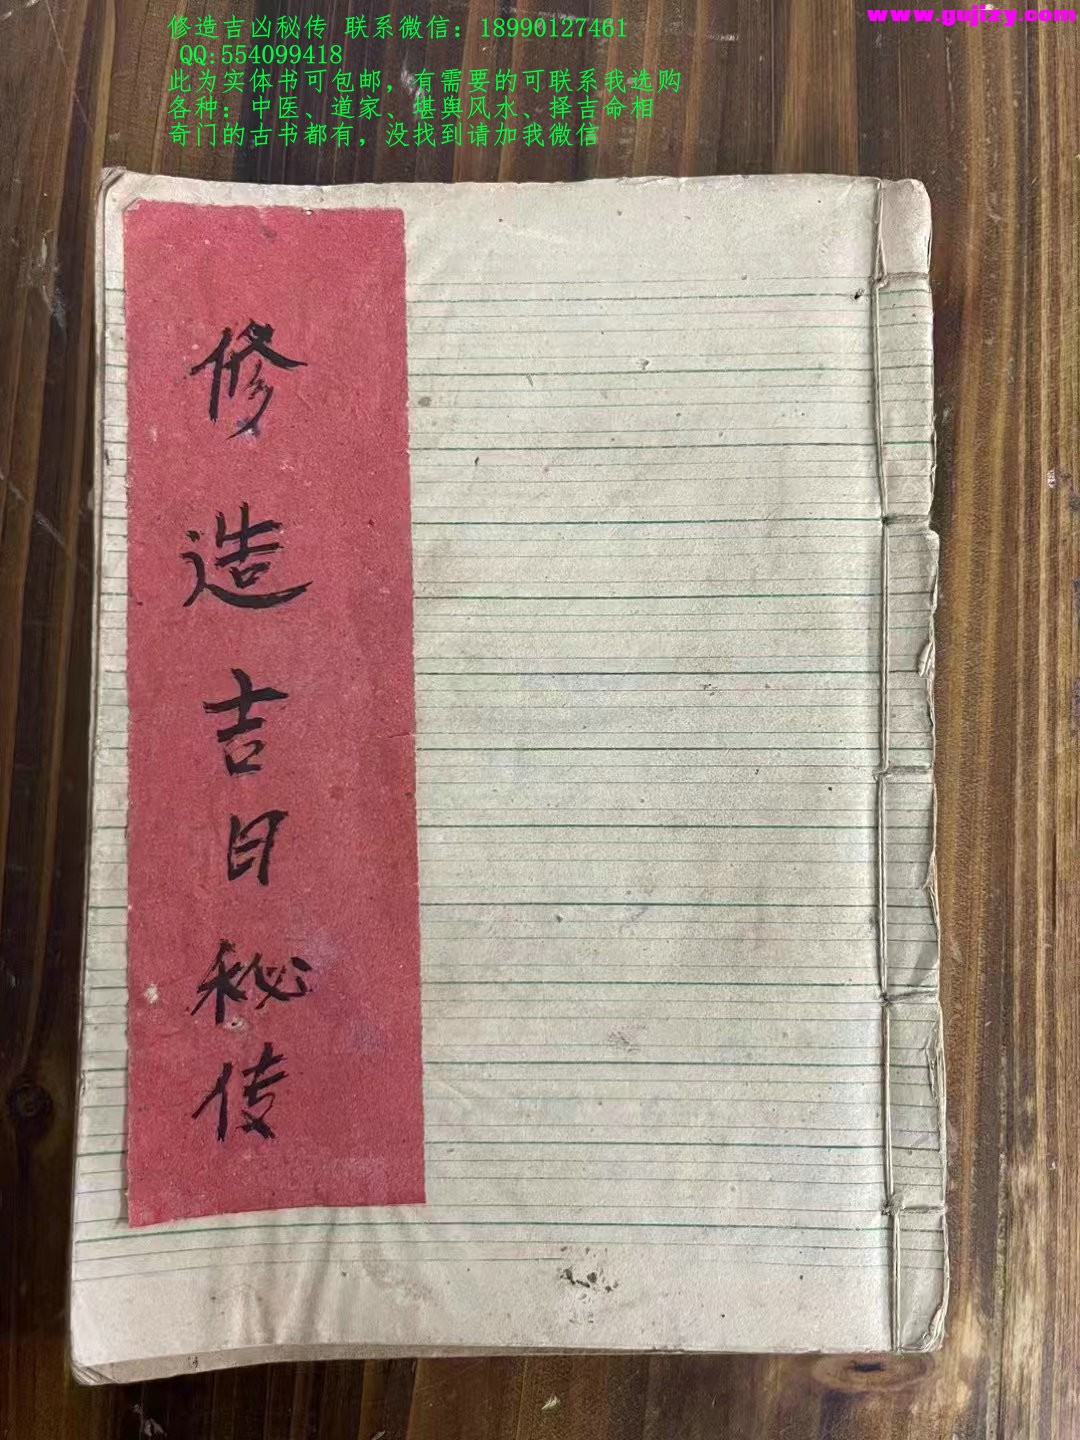 www.gujizy.com
修造吉凶秘传 联系微信：18990127461
QQ:554099418
此为实体书可包邮，有需要的可联系我选购
各种：中医、道家、堪舆风水、择吉命相
奇门的古书都有，没找到请加我微信
修造吉日秘传